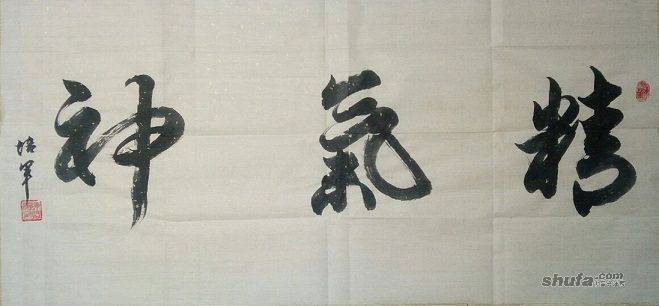 精氣神
培軍
shufa.com